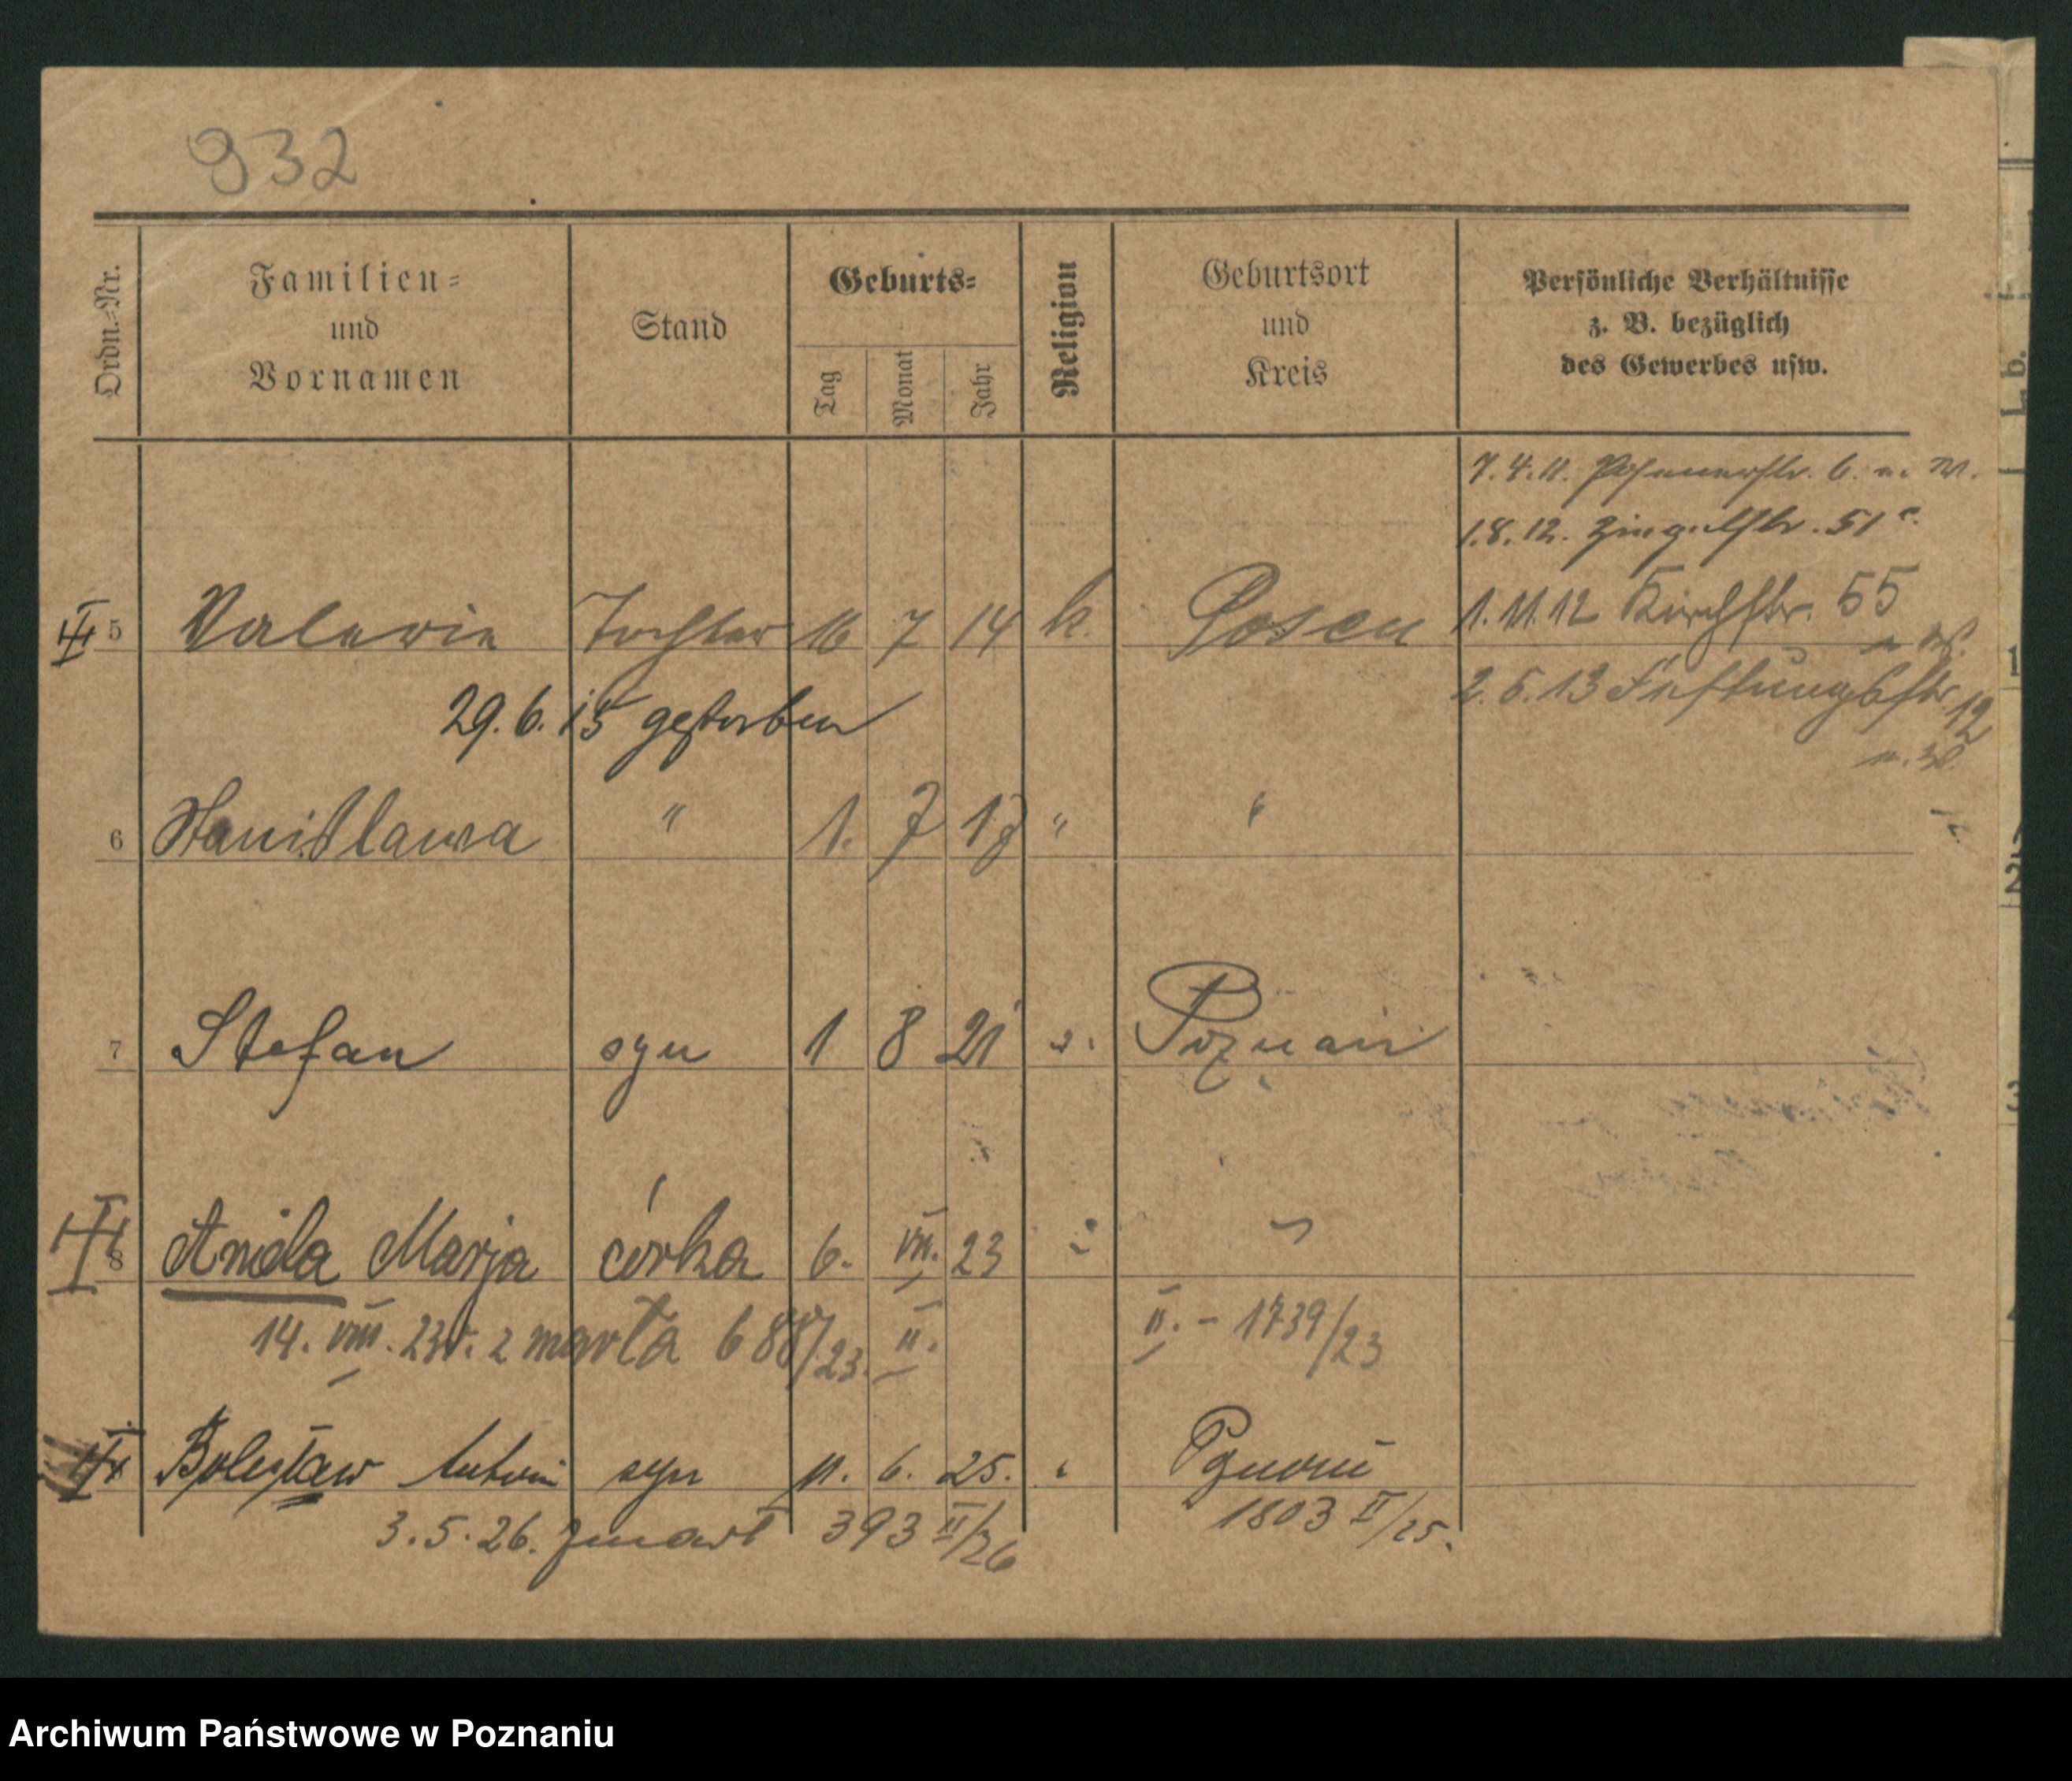 932
Ordn.-Nr.
Familien-
und
Vornamen
Stand
Geburts-
Tag
Monat
Jahr
Religion
Geburtsort
und
Kreis
Persönliche Verhältnisse
z. B. bezüglich
des Gewerbes usw.
7.4.11. Posenerstr. 6.
1.8.12. 51
1.11.12 Kirchstr. 55
5 Valerie Tochter 16 7 14 k. Posen
2.5.13 Festungsstr. 12
29.6.15 gestorben
6 Stanislawa " 1. 7 17 " "
7 Stefan syn 1 8 21 Poznań
8 Aniela Marja córka 6. VIII. 23
14. VIII. 23 r. zmarła 688/23. II.
II. - 1739/23
Bolesław Antoni syn 11. 6. 25.
3.5.26. zmarł 393 II/26
1803 II/25.
Archiwum Państwowe w Poznaniu